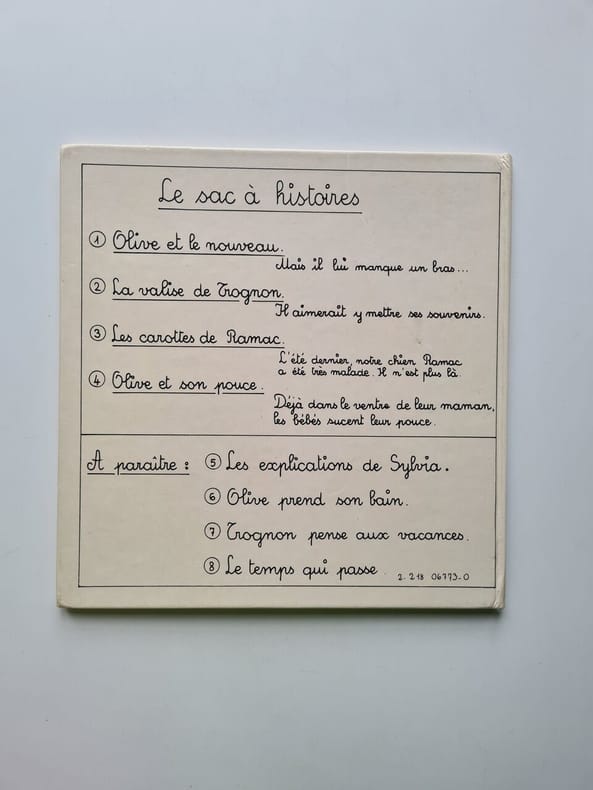 Le sac à histoires
① Olive et le nouveau.
Mais il lui manque un bras...
② La valise de Trognon.
Il aimerait y mettre ses souvenirs.
③ Les carottes de Ramac.
L'été dernier, notre chien Ramac
a été très malade. Il n'est plus là.
④ Olive et son pouce.
Déjà dans le ventre de leur maman,
les bébés sucent leur pouce.
A paraître : ⑤ Les explications de Sylvia.
⑥ Olive prend son bain.
⑦ Trognon pense aux vacances.
⑧ Le temps qui passe
2. 218 06773-0